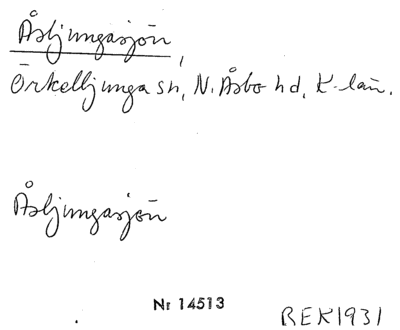 Åsljungasjön,
Örkelljunga sn, N. Åsbo hd, K-län.
Åsljungasjön
Nr 14513
REK1931